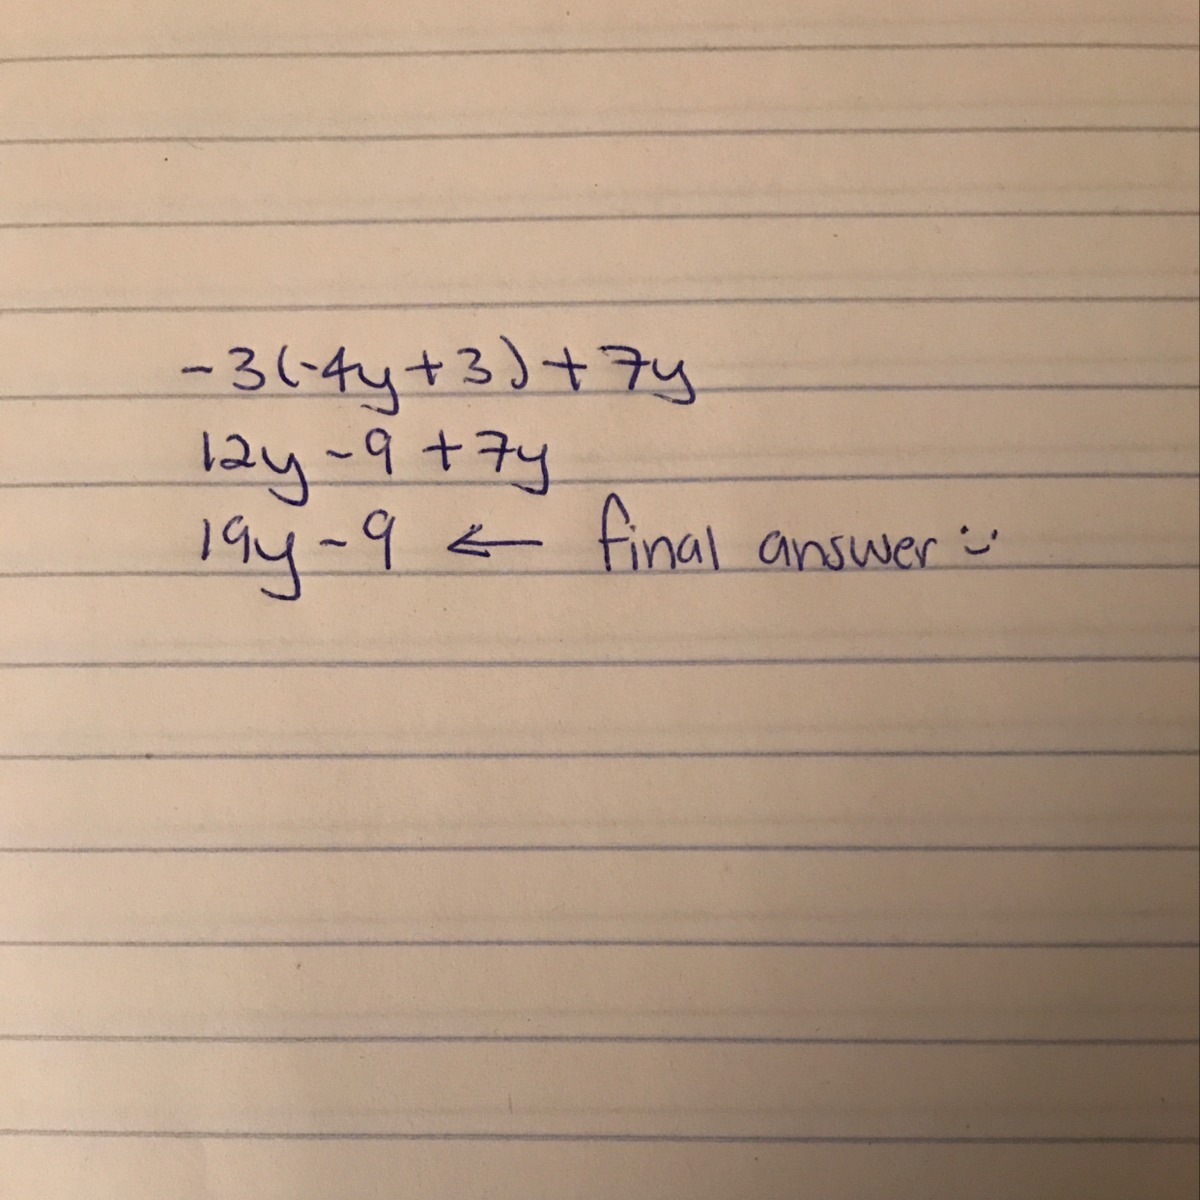 -3(-4y+3)+7y
12y-9+7y
19y-9 ← final answer :)